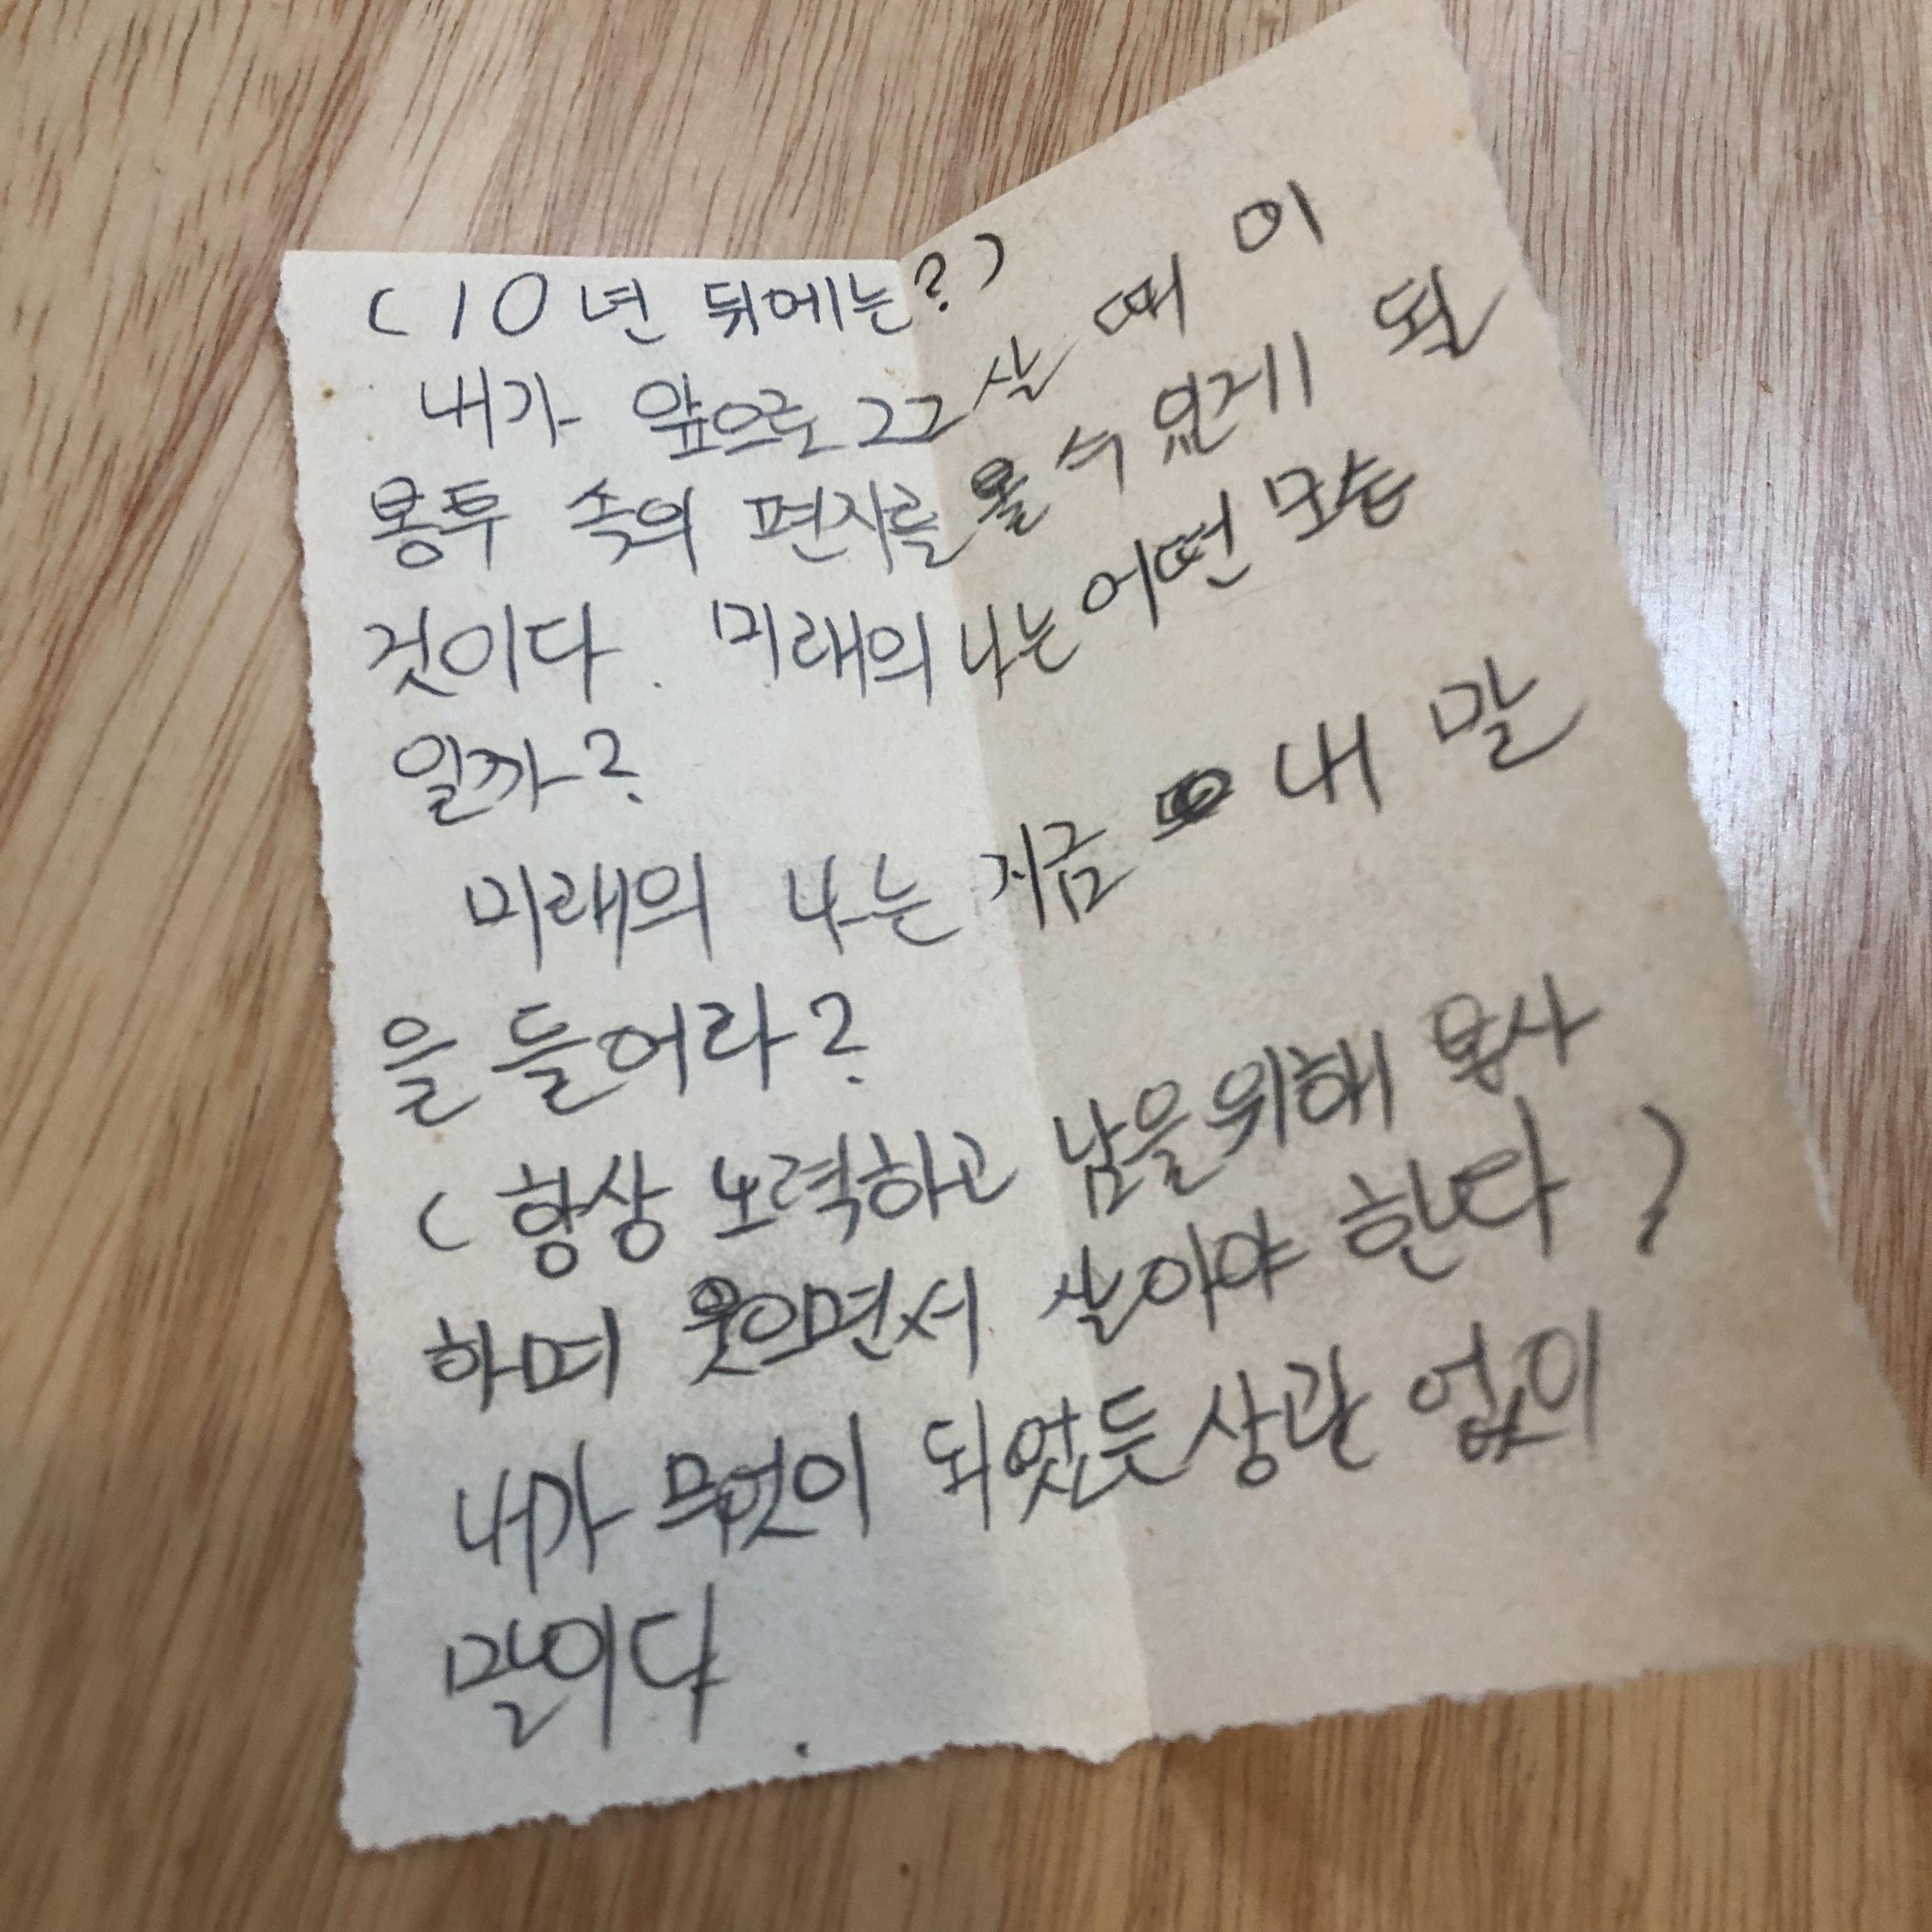 (10년 뒤에는?)
내가 앞으로 22살 때 이
봉투 속의 편지를 볼 수 있게 될
것이다. 미래의 나는 어떤 모습
일까?
미래의 나는 지금 내 말
을 들어라?
(항상 노력하고 남을위해 봉사
하며 웃으면서 살아야 한다)
내가 무엇이 되었든 상관 없이
말이다.